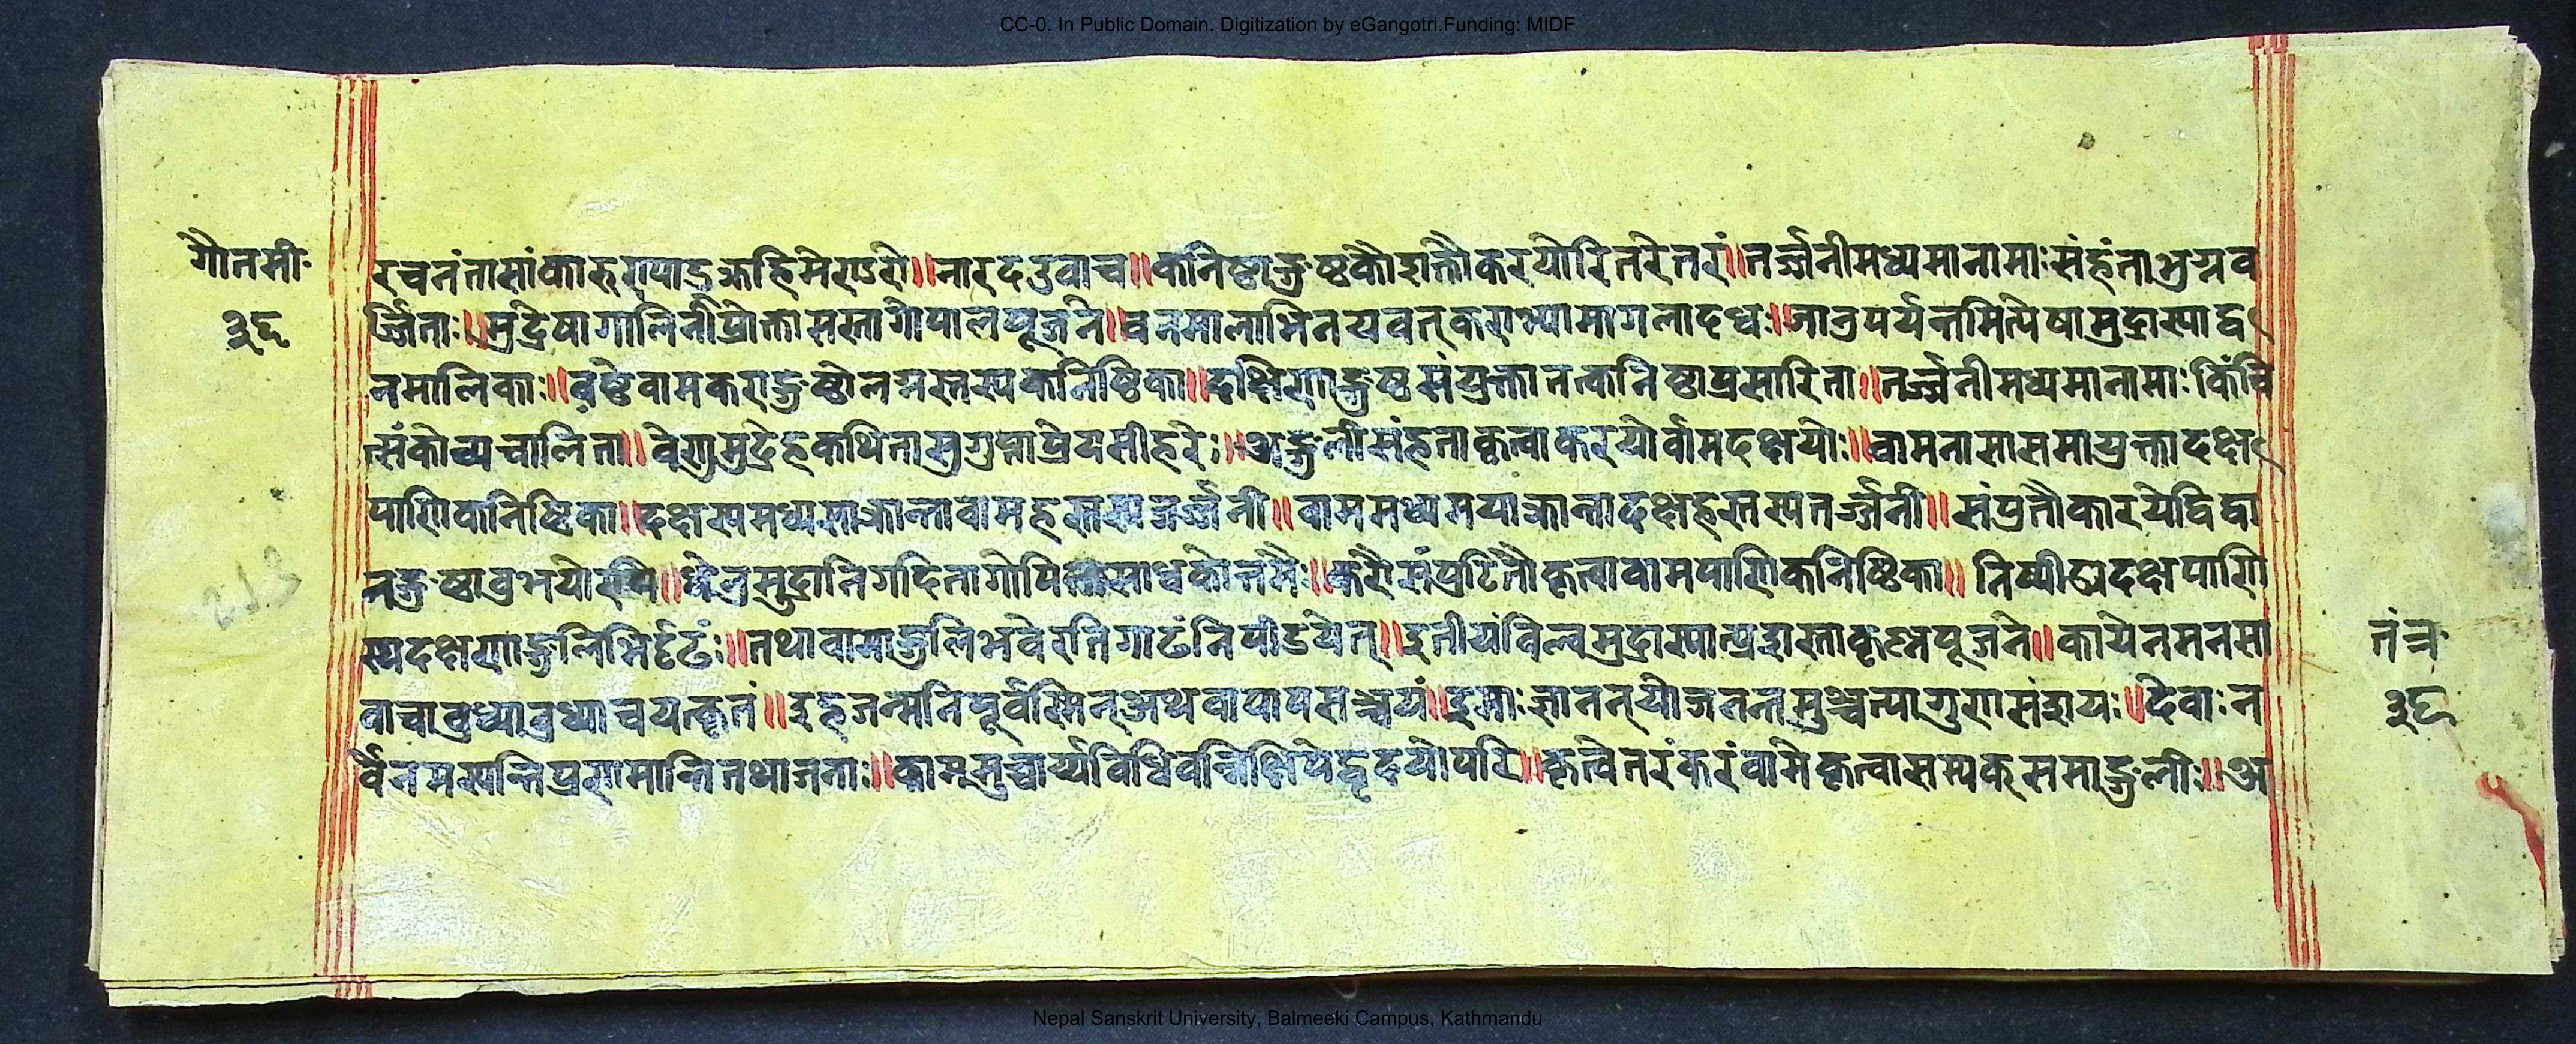 CC-0. In Public Domain. Digitization by eGangotri.Funding: MIDF
गौतमी
३६
रचनंतासांकारुण्याद्ब्रूहिमेगुरो॥नारदउवाच॥कनिष्ठाङ्गुष्ठकौशक्तौकरयोरितरेतरं॥तर्ज्जनीमध्यमानामाःसंहंताभुग्नव
र्ज्जिताः॥मुद्रेषागालिनीप्रोक्तासस्तागोपालपूजने॥वनमालाभिनयवत्कराभ्यामागलादधः॥जानुपर्यन्तमित्येषामुद्रास्याद्व
नमालिकाः॥वामकराङ्गुष्ठोलग्नस्तस्यकनिष्ठिका॥दक्षिणाङ्गुष्ठसंयुक्तातत्कनिष्ठाप्रसारिता॥तर्ज्जनीमध्यमानामाःकिंचि
त्संकोच्यचालिता॥वेणुमुद्रेहकथितासुगुह्याप्रेयसीहरेः॥अङ्गुलीसंहताकृत्वाकरयोर्वामदक्षयोः॥वामनासासमायुक्तादक्ष
पाणिकनिष्ठिका॥दक्षस्यमध्यमाक्रान्तावामहस्तस्यतर्ज्जनी॥वाममध्यमयाक्रान्तादक्षहस्तस्यतर्ज्जनी॥संयुतौकारयेद्विद्वा
नङ्गुष्ठावुभयोरपि॥धेनुमुद्रानिगदितागोपितासाधकोत्तमैः॥करौसंपुटितौकृत्वावामपाणिकनिष्ठिका॥निष्पीड्यदक्षपाणि
स्यदक्षणाङ्गुलिभिर्दृढंः॥तथावामाङ्गुलिभवेरतिगाढंनिपीडयेत्॥इतीयंविल्वमुद्रास्यात्प्रशस्ताकृष्णपूजने॥कायेनमनसा
वाचाबुध्याबुध्याचयत्कृतं॥इहजन्मनिपूर्वस्मिन्अथवापापसञ्चयं॥इमाःज्ञातन्योजनमुञ्चत्यागुणसंशयः॥देवाःन
र्वेनमस्यन्तिप्रणमान्तितथाजनाः॥काममुच्चार्य्यविधिवन्निक्षिपेद्धृदयोपरि॥कृत्वेतरंकरंवामेकृत्वासम्यक्समाङ्गुलीः॥अ
तंत्र
३६
Nepal Sanskrit University, Balmeeki Campus, Kathmandu